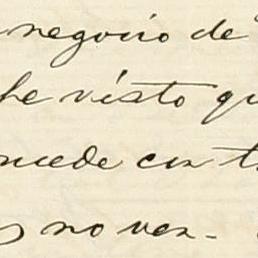 negocio de
he visto qu
uede en t
no ven-